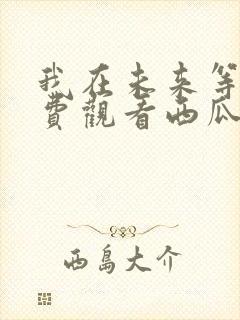 我在未来等
費觀看西瓜
西島大介